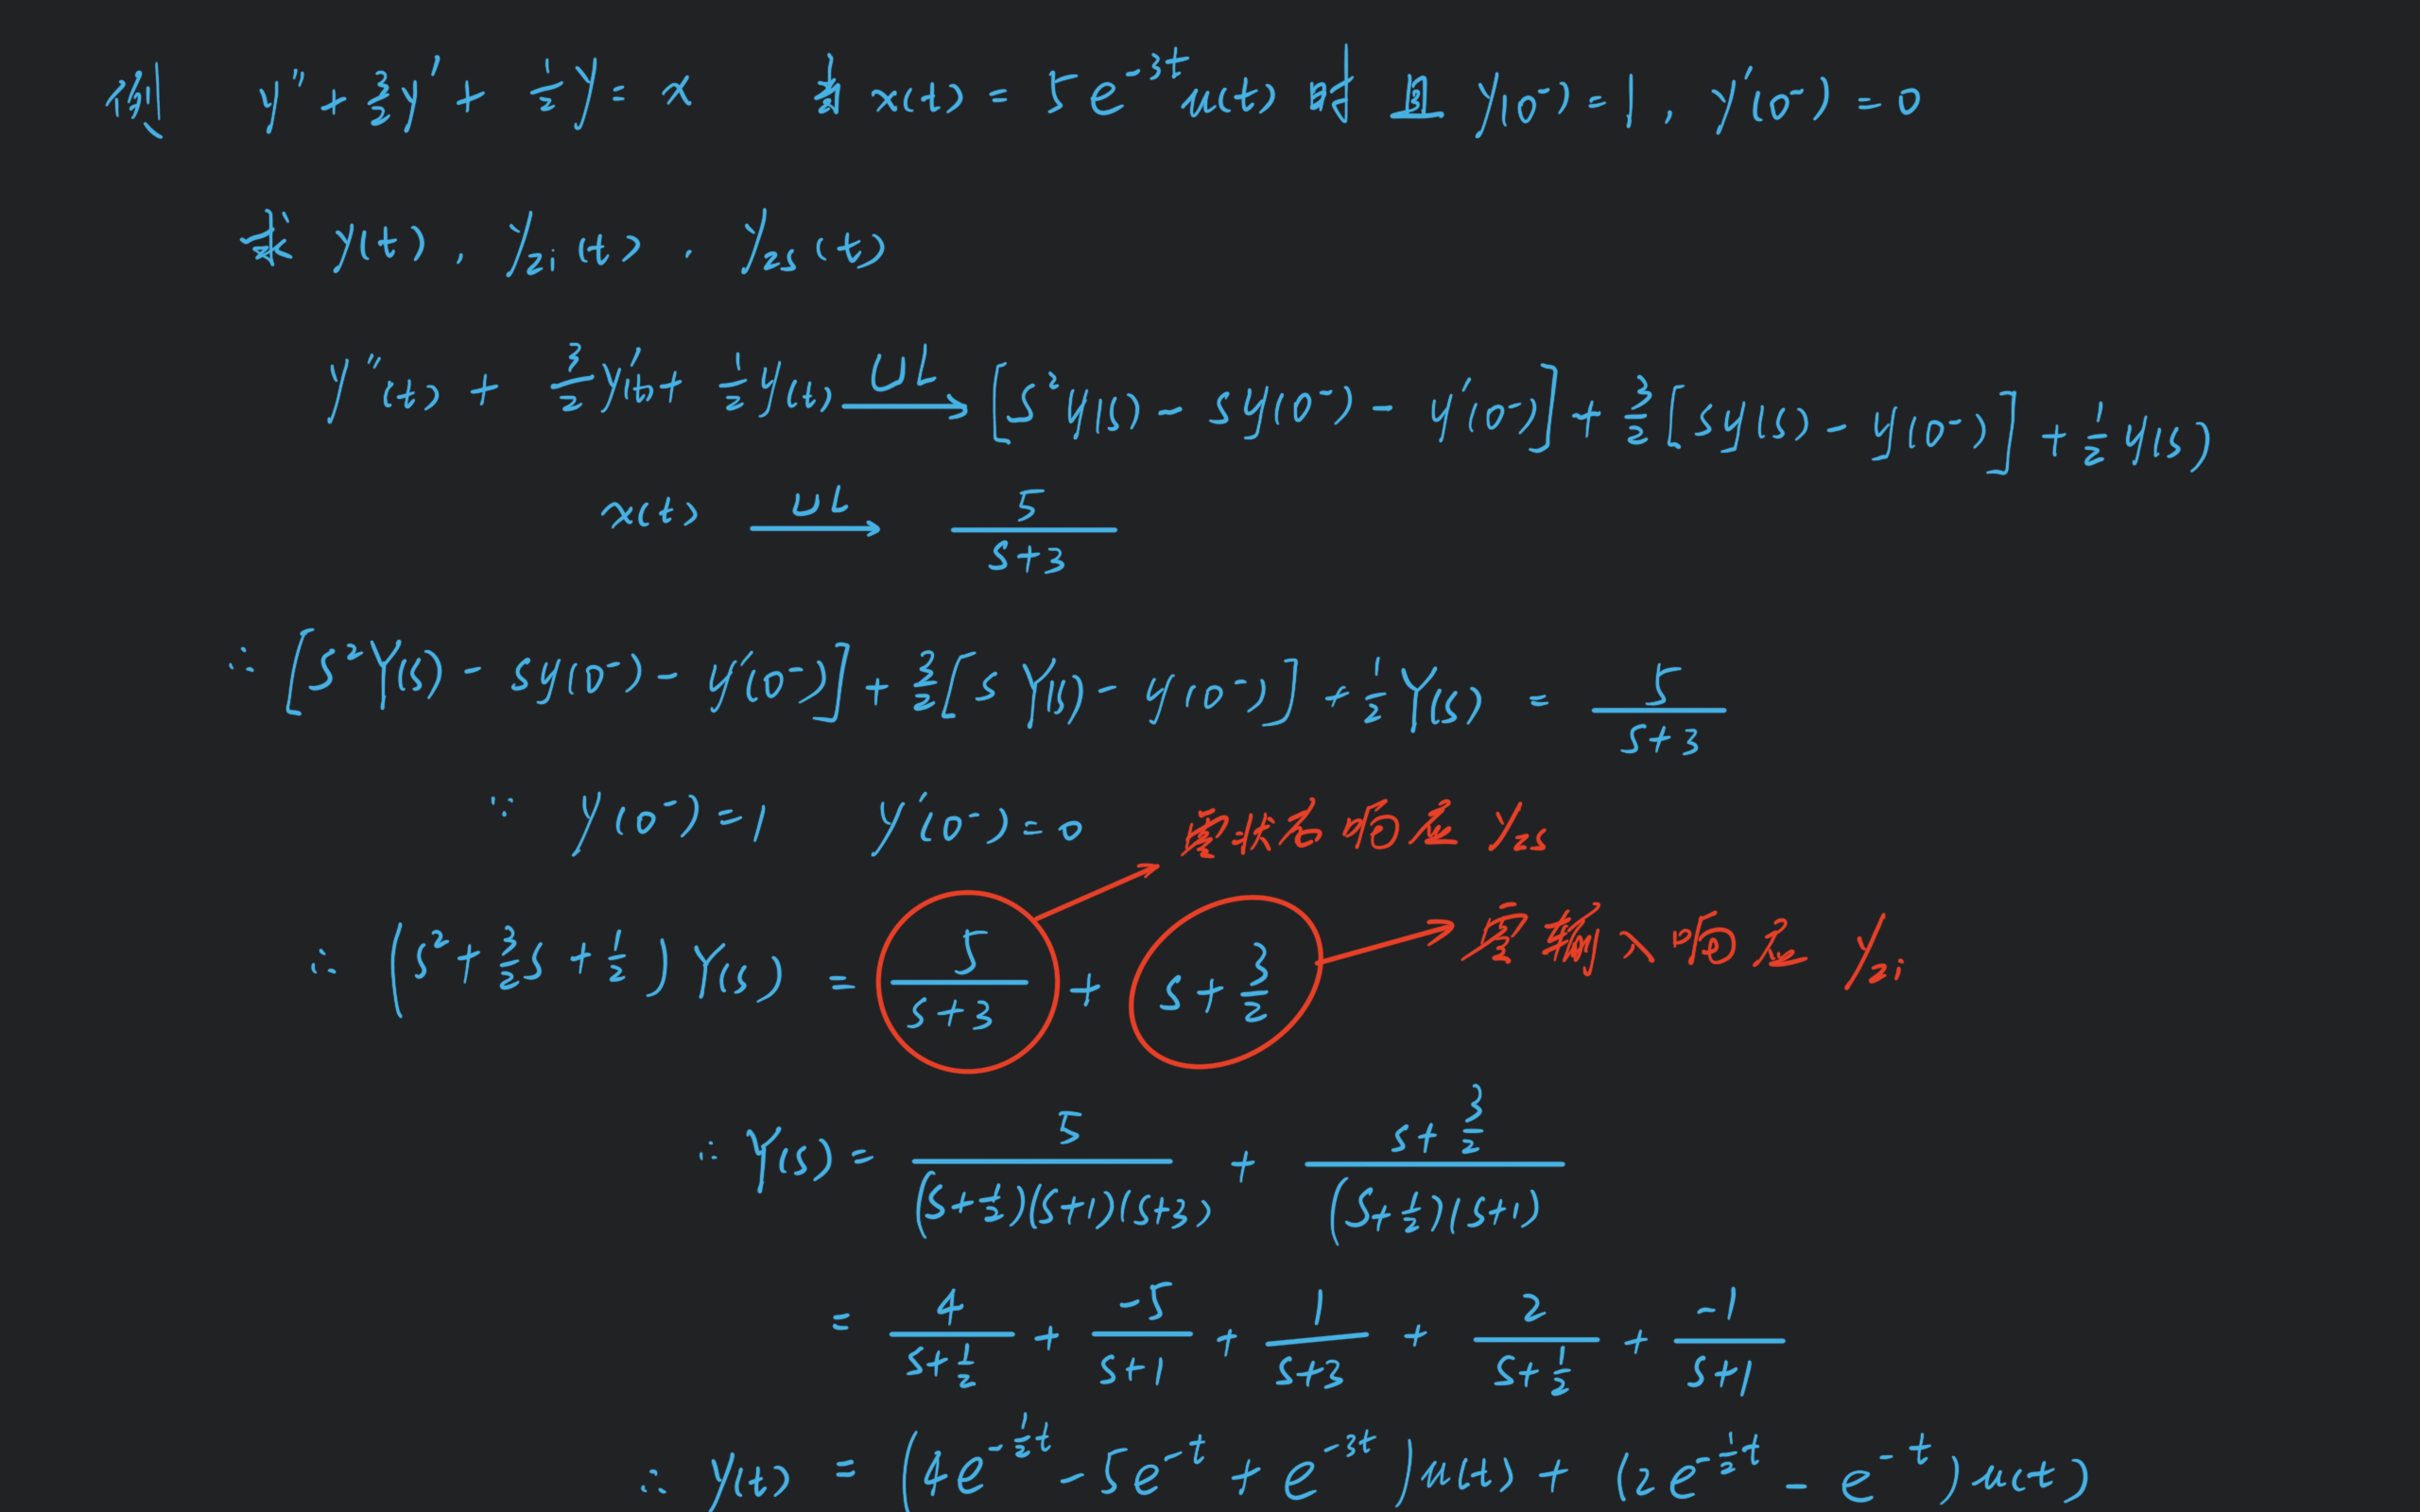 例 y'' + 3/2 y' + 1/2 y = x 当 x(t) = 5e^{-3t}u(t) 时 且 y(0⁻)=1, y'(0⁻)=0
求 y(t), y_{zi}(t), y_{zs}(t)
y''(t) + 3/2 y'(t) + 1/2 y(t) —UL→ [s²y(s) - sy(0⁻) - y'(0⁻)] + 3/2[sy(s) - y(0⁻)] + 1/2 y(s)
x(t) —UL→ 5/(s+3)
∴ [s²Y(s) - sy(0⁻) - y'(0⁻)] + 3/2[sY(s) - y(0⁻)] + 1/2 Y(s) = 5/(s+3)
∵ y(0⁻)=1 y'(0⁻)=0
零状态响应 y_{zs}
∴ (s² + 3/2 s + 1/2) Y(s) = 5/(s+3) + s + 3/2 → 零输入响应 y_{zi}
∴ Y(s) = 5/((s+1/2)(s+1)(s+3)) + (s+3/2)/((s+1/2)(s+1))
= 4/(s+1/2) + -5/(s+1) + 1/(s+3) + 2/(s+1/2) + -1/(s+1)
∴ y(t) = (4e^{-1/2 t} - 5e^{-t} + e^{-3t})u(t) + (2e^{-1/2 t} - e^{-t})u(t)